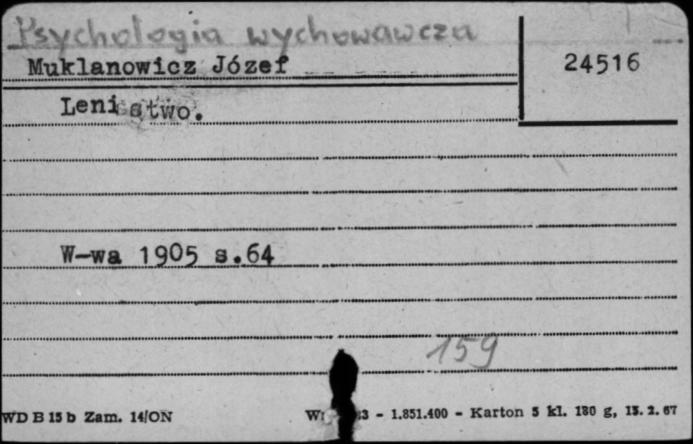 Psychologia wychowawcza
Muklanowicz Józef
24516
Lenistwo.
W-wa 1905 s.64
159
WD B 15 b Zam. 14/ON 3 - 1.851.400 - Karton 5 kl. 180 g, 15.2.67